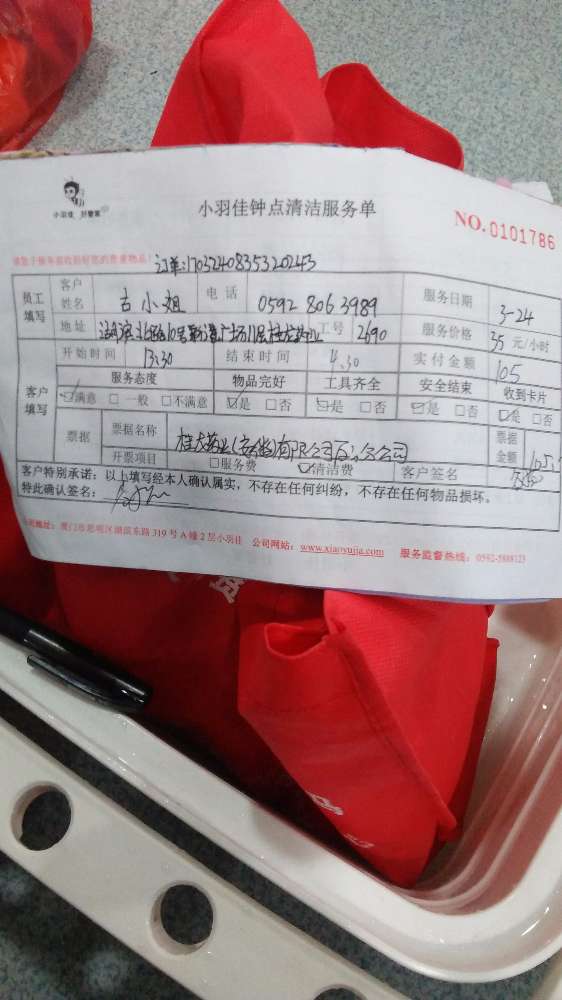 小羽佳 好管家
小羽佳钟点清洁服务单
NO.0101786
订单:1703240835320243
员工填写 客户姓名 古小姐 电话 0592 8063989 服务日期 3-24
地址 工号 2690 服务价格 35 元/小时
开始时间 13:30 结束时间 4.30 实付金额 105
客户填写 服务态度 物品完好 工具齐全 安全结束 收到卡片
☑满意 □一般 □不满意 ☑是 □否 ☑是 □否 ☑是 □否 ☑是 □否
票据 票据名称 有限公司 分公司 票据金额 105
开票项目 □服务费 ☑清洁费 客户签名
客户特别承诺：以上填写经本人确认属实，不存在任何纠纷，不存在任何物品损坏。
特此确认签名：
公司地址：厦门市思明区湖滨东路 319 号 A 幢 2 层小羽佳 公司网站：www.xiaoyujia.com 服务监督热线：0592-5888123